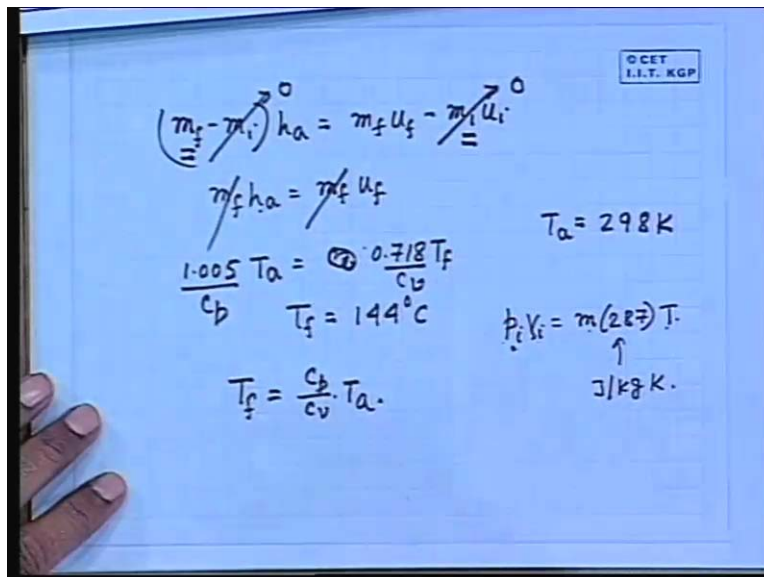 © CET
I.I.T. KGP
(m_f - m_i) h_a = m_f u_f - m_i u_i
0 0
m_f h_a = m_f u_f
T_a = 298 K
1.005 T_a = 0.718 T_f
C_p C_v
T_f = 144°C
p_i V_i = m(287) T.
↑
J/kg K.
T_f = C_p/C_v · T_a.